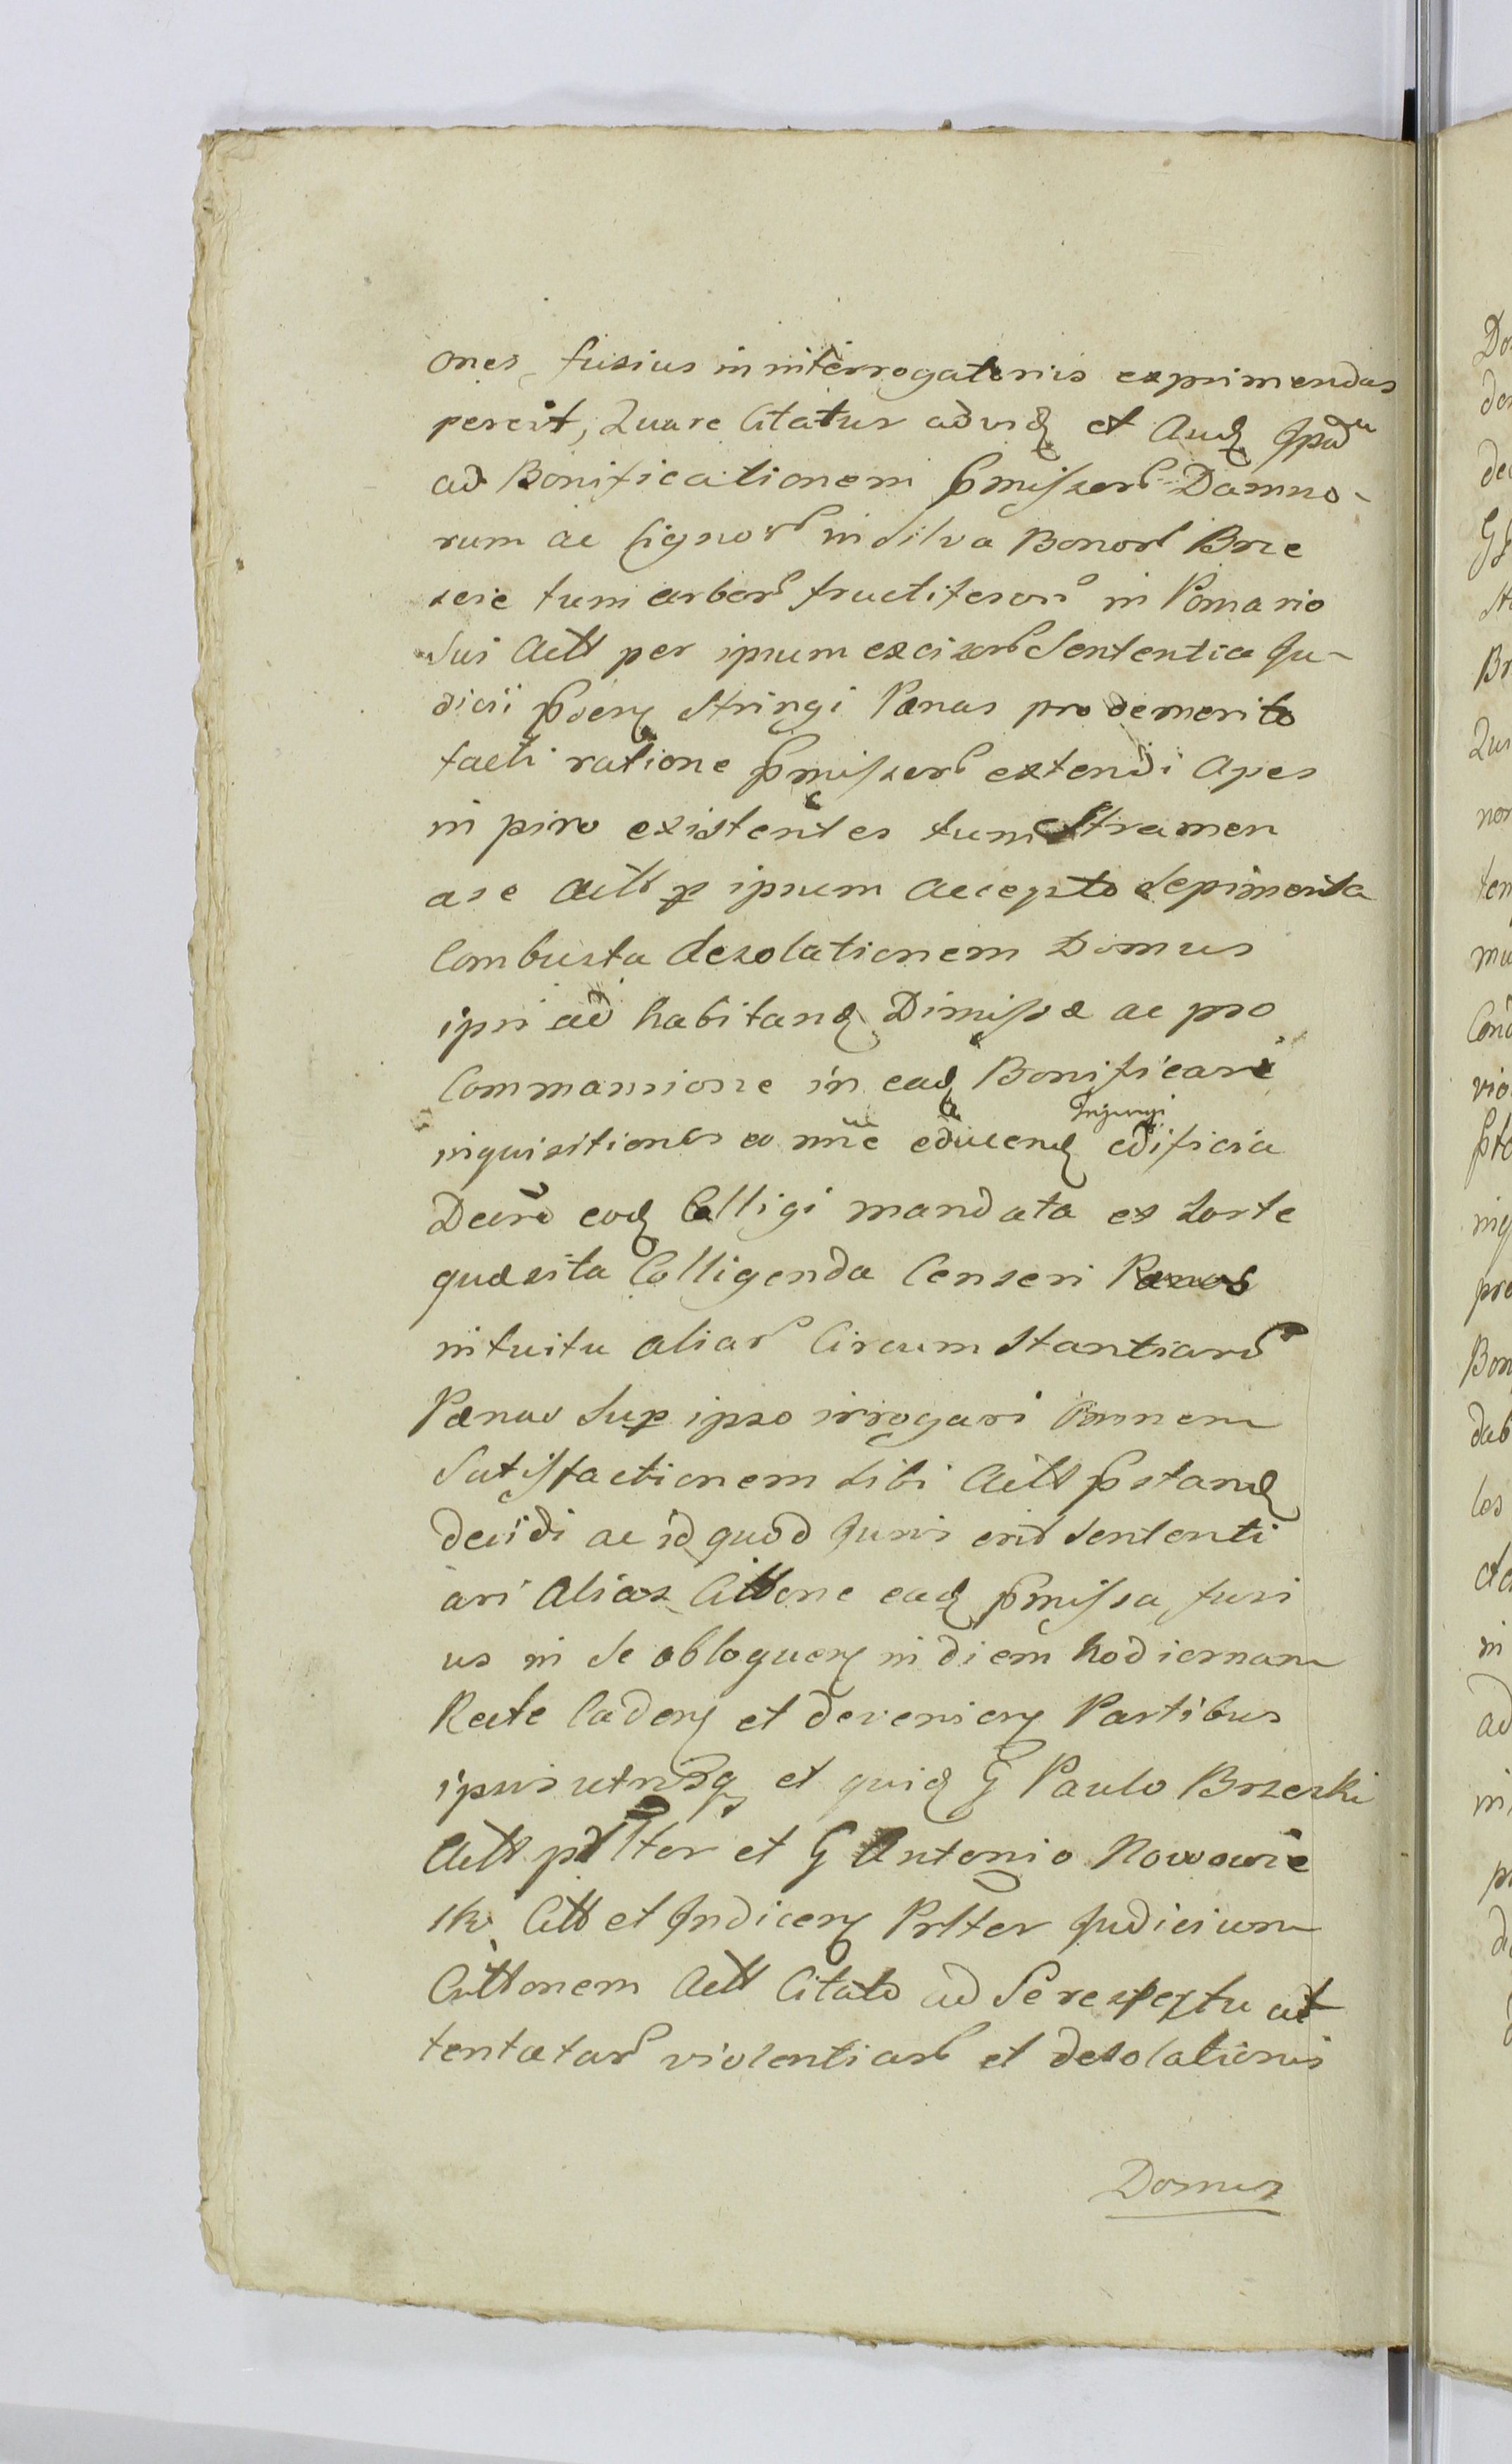 ones, fusius in interrogatoriis exprimendas
perecit, Quare Citatur ad vidð et Audð
ad Bonificationem pmissor Damno-
rum ac Lignor in Silva Bonor Brze
zcie tum arbor fructiferor in Pomario
Sui Actt per ipsum excisor Sententia Ju-
dicii stringi Pœnas pro demerito
facti ratione pmissor extendi Apes
in piro existentes tum Stramen
a se Actt p ipsum accepto Sepimenta
Combusta desolationem Domus
ipsi ad habitandð Dimissæ ac pro
Commansione in eadð Bonificari
Injungi
inquisitiones eo nñe educendð edificia
Decrõ eodð Colligi mandata ex Sorte
quæsita Colligenda Censeri Pænas
intuitu aliar Circumstantiar
Pænas Sup ipso irrogari Omnem
Satisfactionem Sibi Actt pstandð
decidi ac id quod Juris erit Sententi
ari Alias Cittone eadð pmissa, fusi
us in Se obloquen in diem hodiernam
Recte Caden et devenien Partibus
ipsis utrisq et quidð G Paulo Brzeski
Actt plter et G Antonio Nowowie
ski Citt et Indicen Prlter Judicium
Cittonem Actt Citato ad Se respectu at
tentatar violentiar et desolationis
Domus
Do
de
Br
nor
tem
vio
pre
Bon
dab
los
in
ad